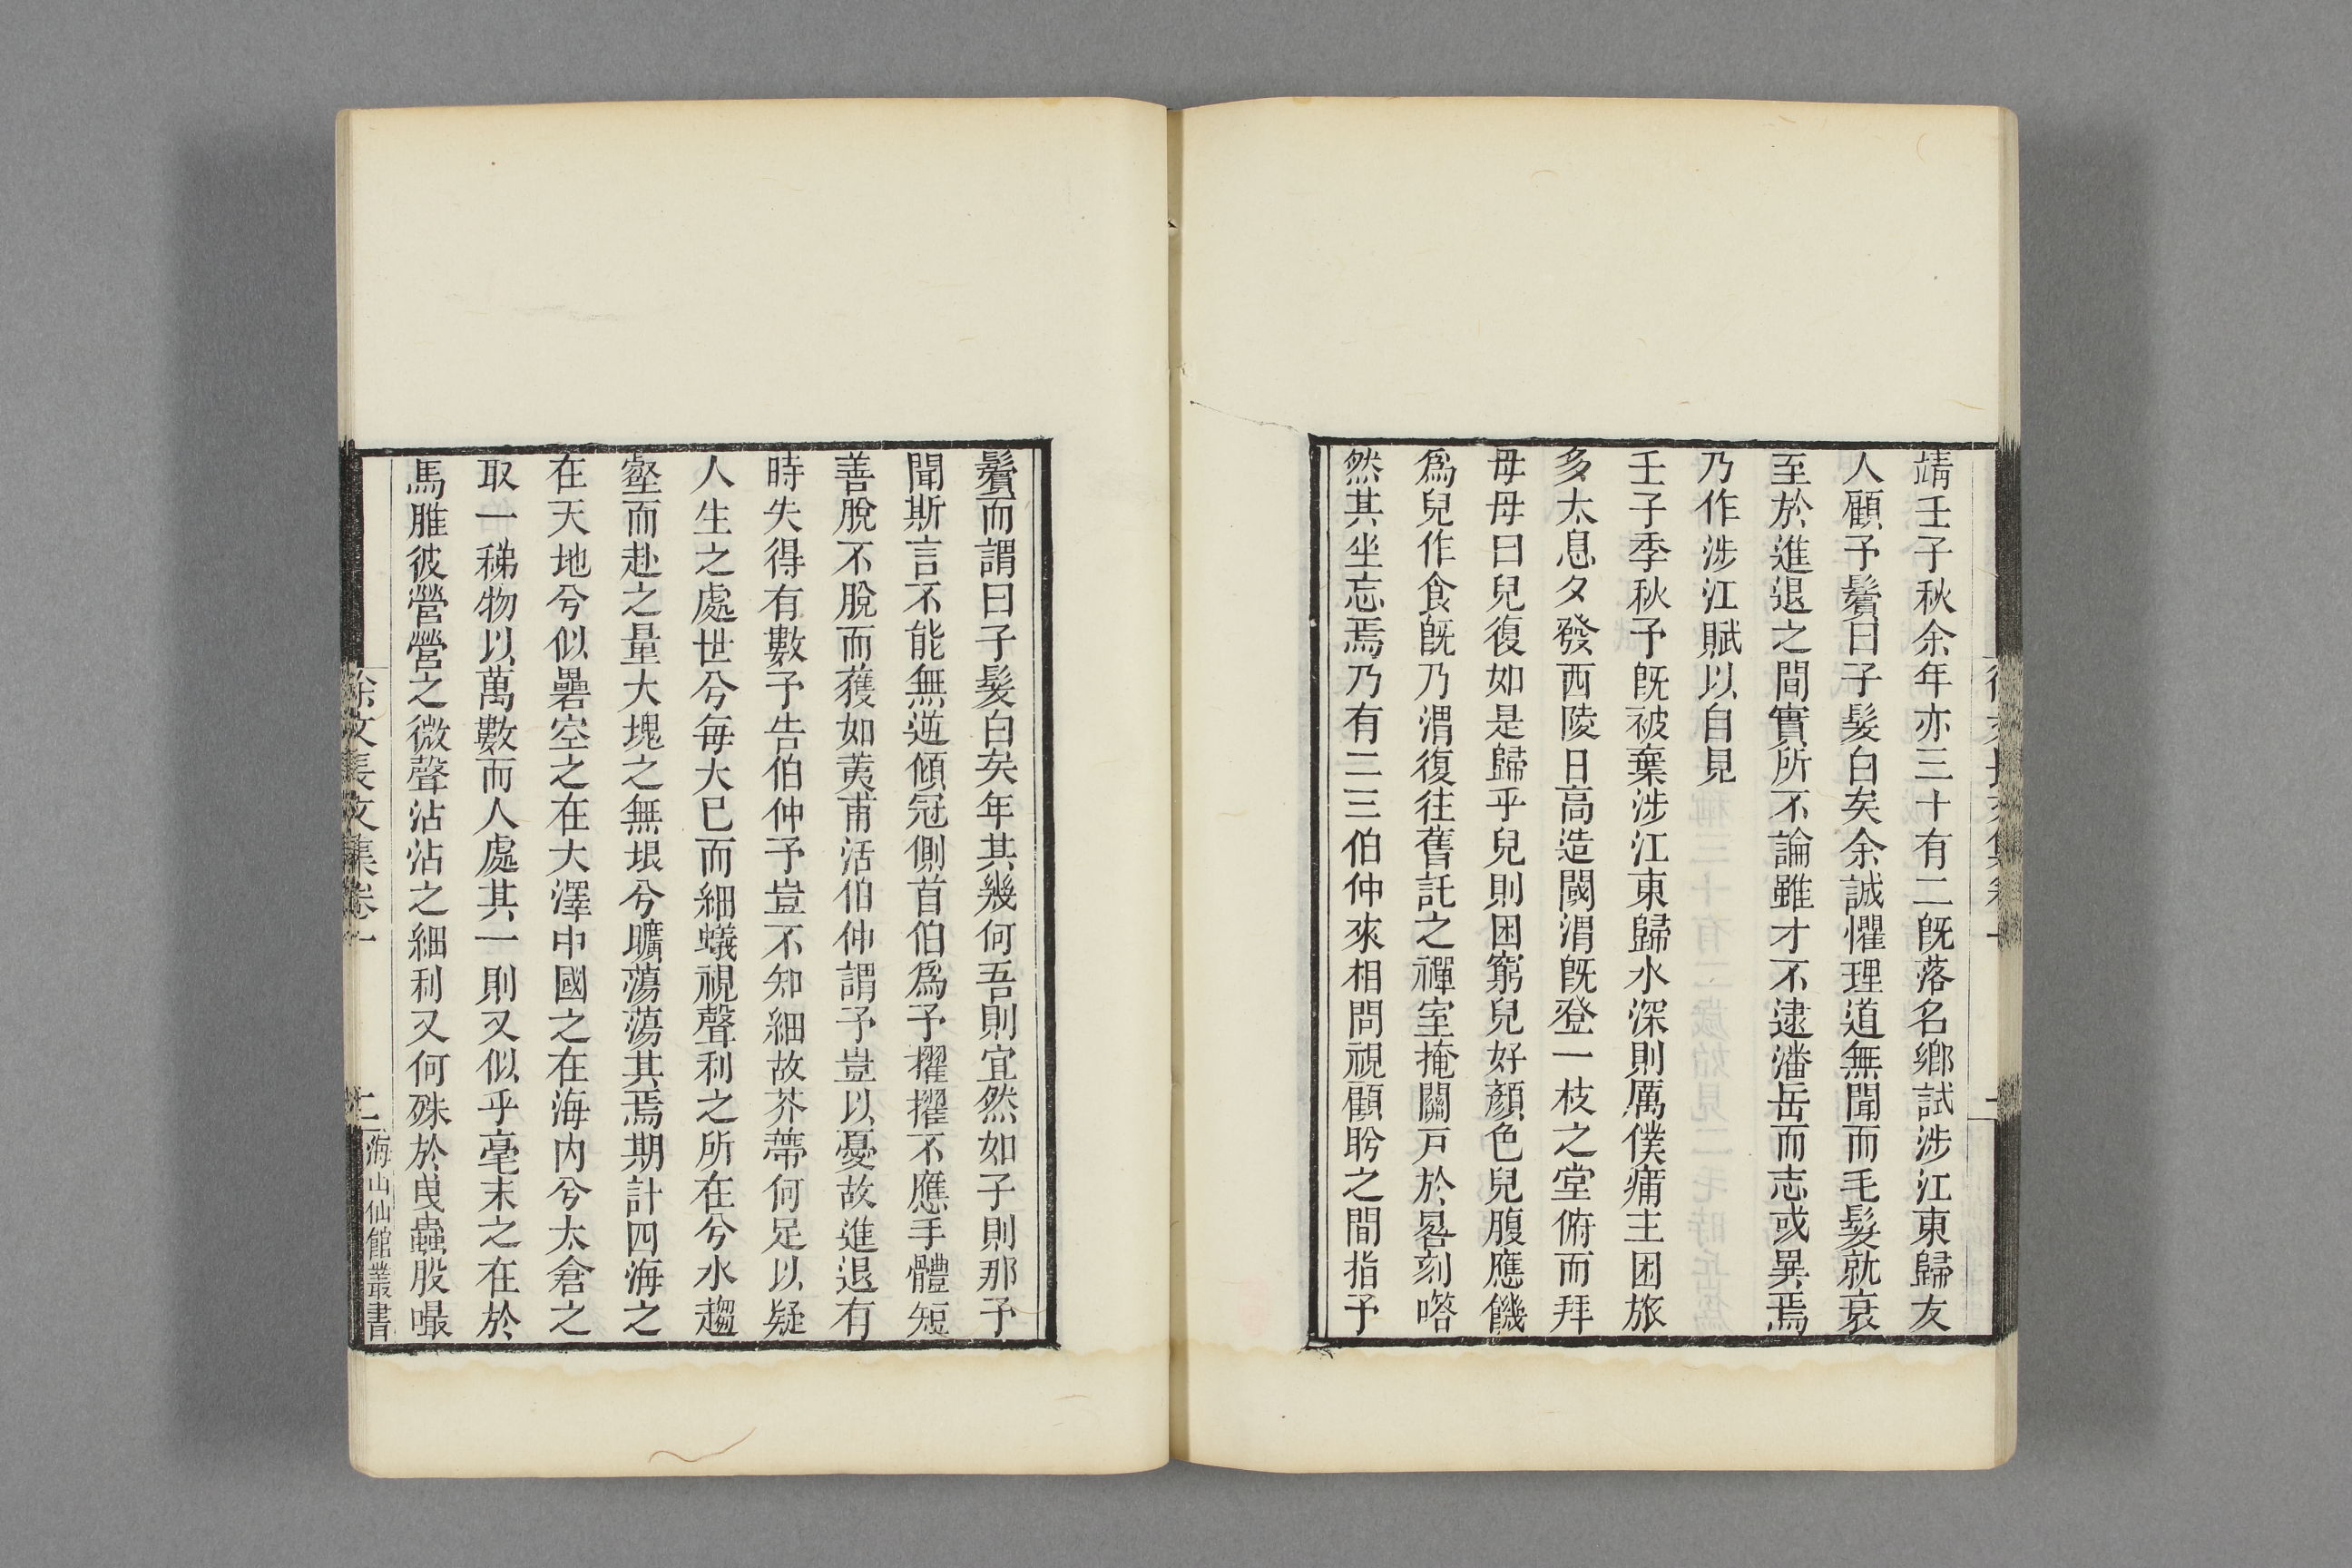 靖壬子秋余年亦三十有二旣落名鄉試涉江東歸友
人顧予鬢曰子髮白矣余誠懼理道無聞而毛髮就衰
至於進退之間實所不論雖才不逮潘岳而志或異焉
乃作涉江賦以自見
壬子季秋予旣被棄涉江東歸水深則厲僕痡主困旅
多太息夕發西陵日高造闉渭旣登一枝之堂俯而拜
母母曰兒復如是歸乎兒則困窮兒好顏色兒腹應饑
爲兒作食旣乃渭復往舊託之禪室掩關戸於晷刻嗒
然其坐忘焉乃有二三伯仲來相問視顧盻之間指予
鬢而謂曰子髮白矣年其幾何吾則宜然如子則那予
聞斯言不能無遊傾冠側首伯爲予擢擢不應手體短
善脫不脫而獲如荑甫活伯仲謂予豈以憂故進退有
時失得有數予告伯仲予豈不知細故芥蔕何足以疑
人生之處世兮每大已而細蟻視聲利之所在兮水趨
壑而赴之量大塊之無垠兮曠蕩蕩其焉期計四海之
在天地兮似礨空之在大澤中國之在海內兮太倉之
取一稊物以萬數而人處其一則又似乎毫末之在於
馬脽彼營營之微聲沾沾之細利又何殊於䖟蟲股嘬
徐文長文集卷一
二
海山仙館叢書